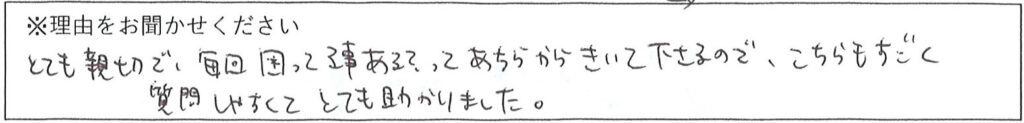 ※理由をお聞かせください
とても親切で、毎回困って事ある?ってあちらからきいて下さるので、こちらもすごく
質問しやすくてとても助かりました。